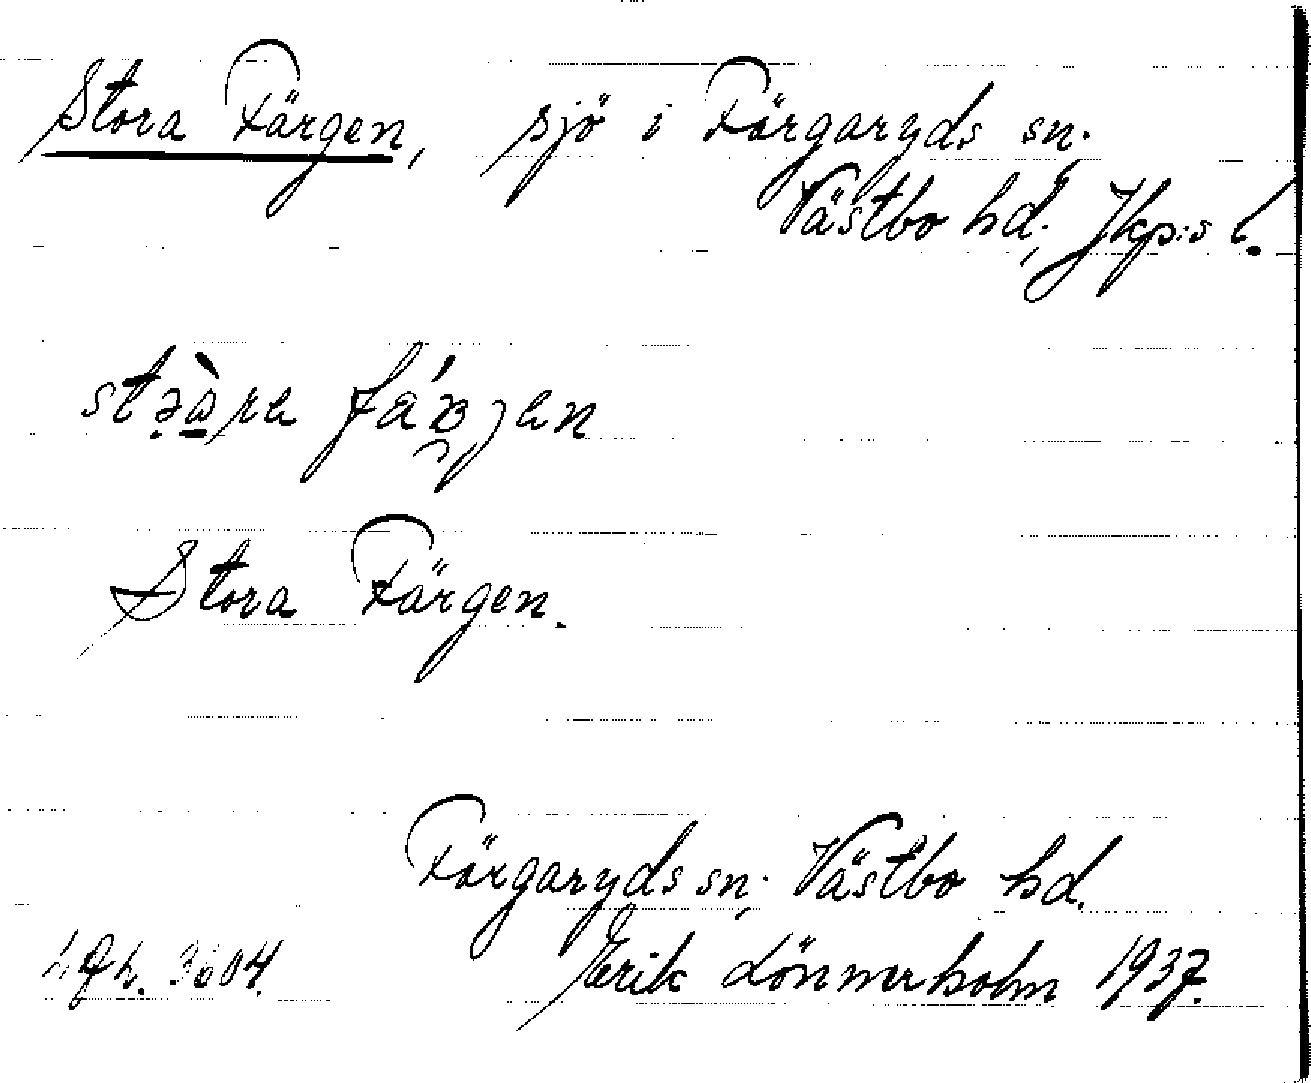 Stora Färgen, sjö i Färgaryds sn.,
Västbo hd., Jkp:s l.
Stora Färgen.
Färgaryds sn., Västbo hd.
Erik Lönnerholm 1937.
3604.